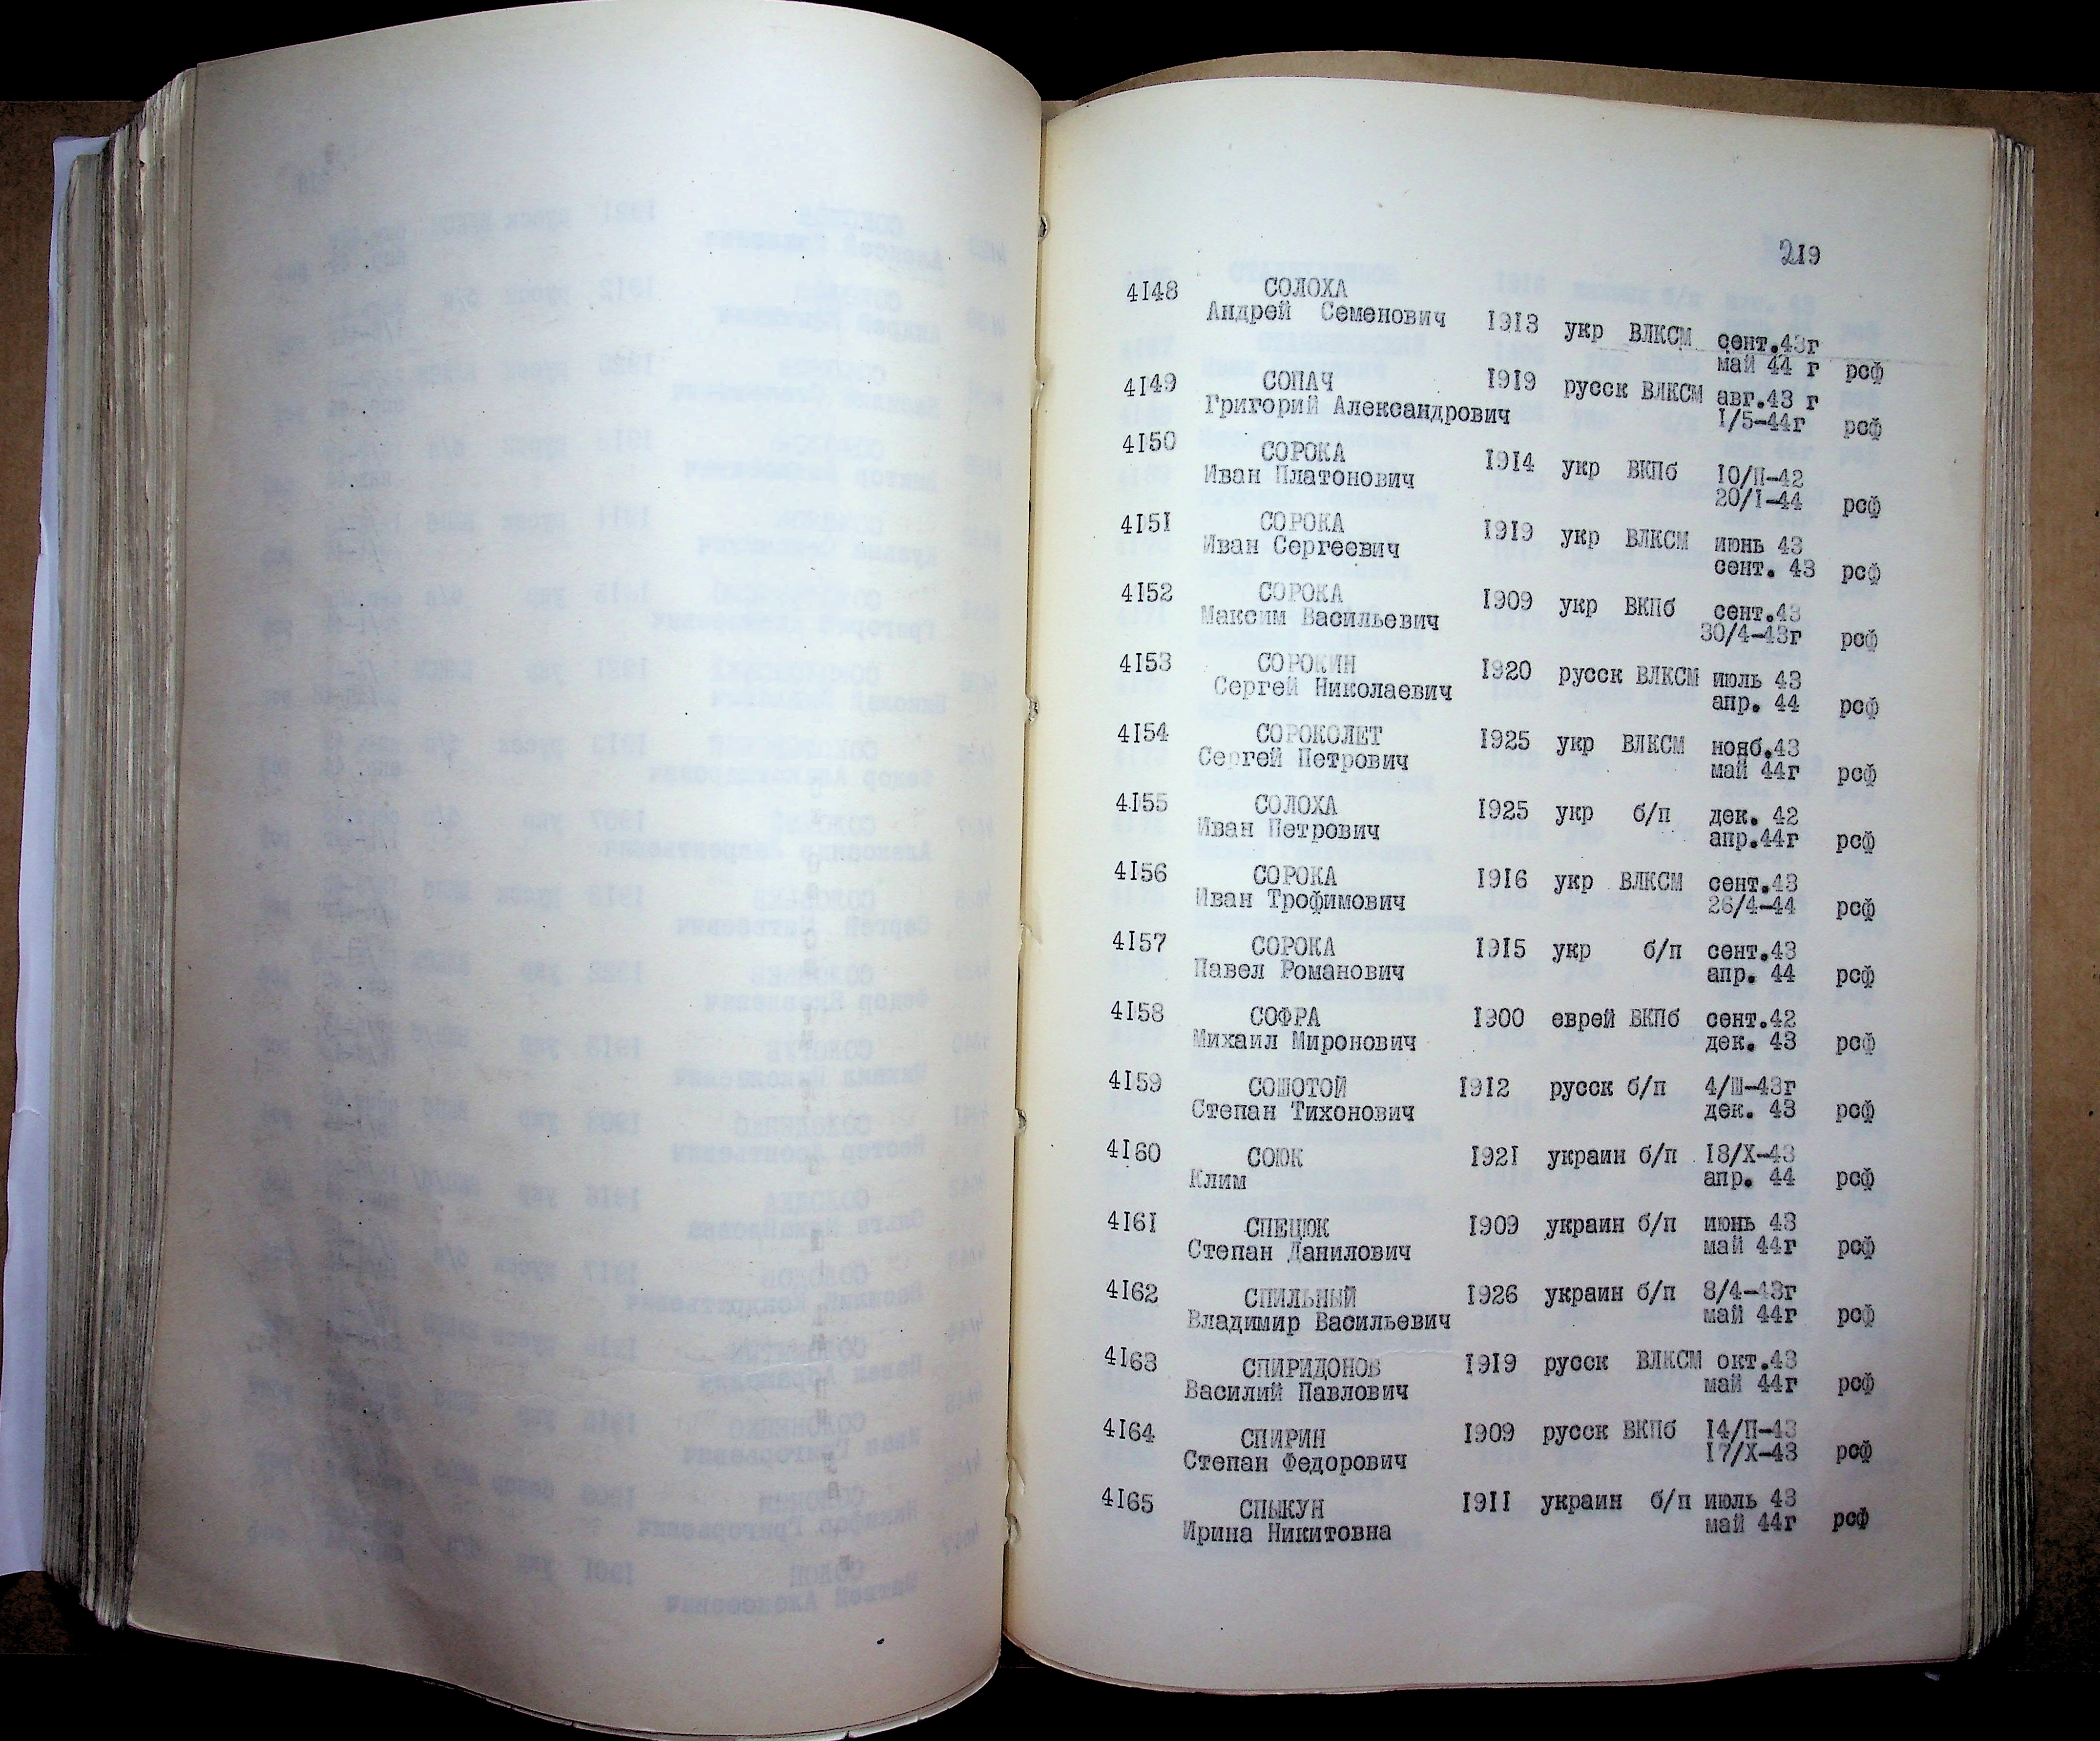 219
4148 СОЛОХА
Андрей Семенович 1913 укр ВЛКСМ сент.43г
май 44 г рсф
4149 СОПАЧ 1919 русск ВЛКСМ авг.43 г
Григорий Александрович 1/5-44г рсф
4150 СОРОКА 1914 укр ВКПб 10/П-42
Иван Платонович 20/1-44 рсф
4151 СОРОКА 1919 укр ВЛКСМ июнь 43
Иван Сергеевич сент. 43 рсф
4152 СОРОКА 1909 укр ВКПб сент.43
Максим Васильевич 30/4-43г рсф
4153 СОРОКИН 1920 русск ВЛКСМ июль 43
Сергей Николаевич апр. 44 рсф
4154 СОРОКОЛЕТ 1925 укр ВЛКСМ нояб.43
Сергей Петрович май 44г рсф
4155 СОЛОХА 1925 укр б/п дек. 42
Иван Петрович апр.44г рсф
4156 СОРОКА 1916 укр ВЛКСМ сент.43
Иван Трофимович 26/4-44 рсф
4157 СОРОКА 1915 укр б/п сент.43
Павел Романович апр. 44 рсф
4158 СОФРА 1900 еврей ВКПб сент.42
Михаил Миронович дек. 43 рсф
4159 СОШОТОЙ 1912 русск б/п 4/Ш-43г
Степан Тихонович дек. 43 рсф
4160 СОЮК 1921 украин б/п 18/Х-43
Клим апр. 44 рсф
4161 СПЕЦЮК 1909 украин б/п июнь 43
Степан Данилович май 44г рсф
4162 СПИЛЬНЫЙ 1926 украин б/п 8/4-43г
Владимир Васильевич май 44г рсф
4163 СПИРИДОНОВ 1919 русск ВЛКСМ окт.43
Василий Павлович май 44г рсф
4164 СПИРИН 1909 русск ВКПб 14/П-43
Степан Федорович 17/Х-43 рсф
4165 СПЫКУН 1911 украин б/п июль 43
Ирина Никитовна май 44г рсф